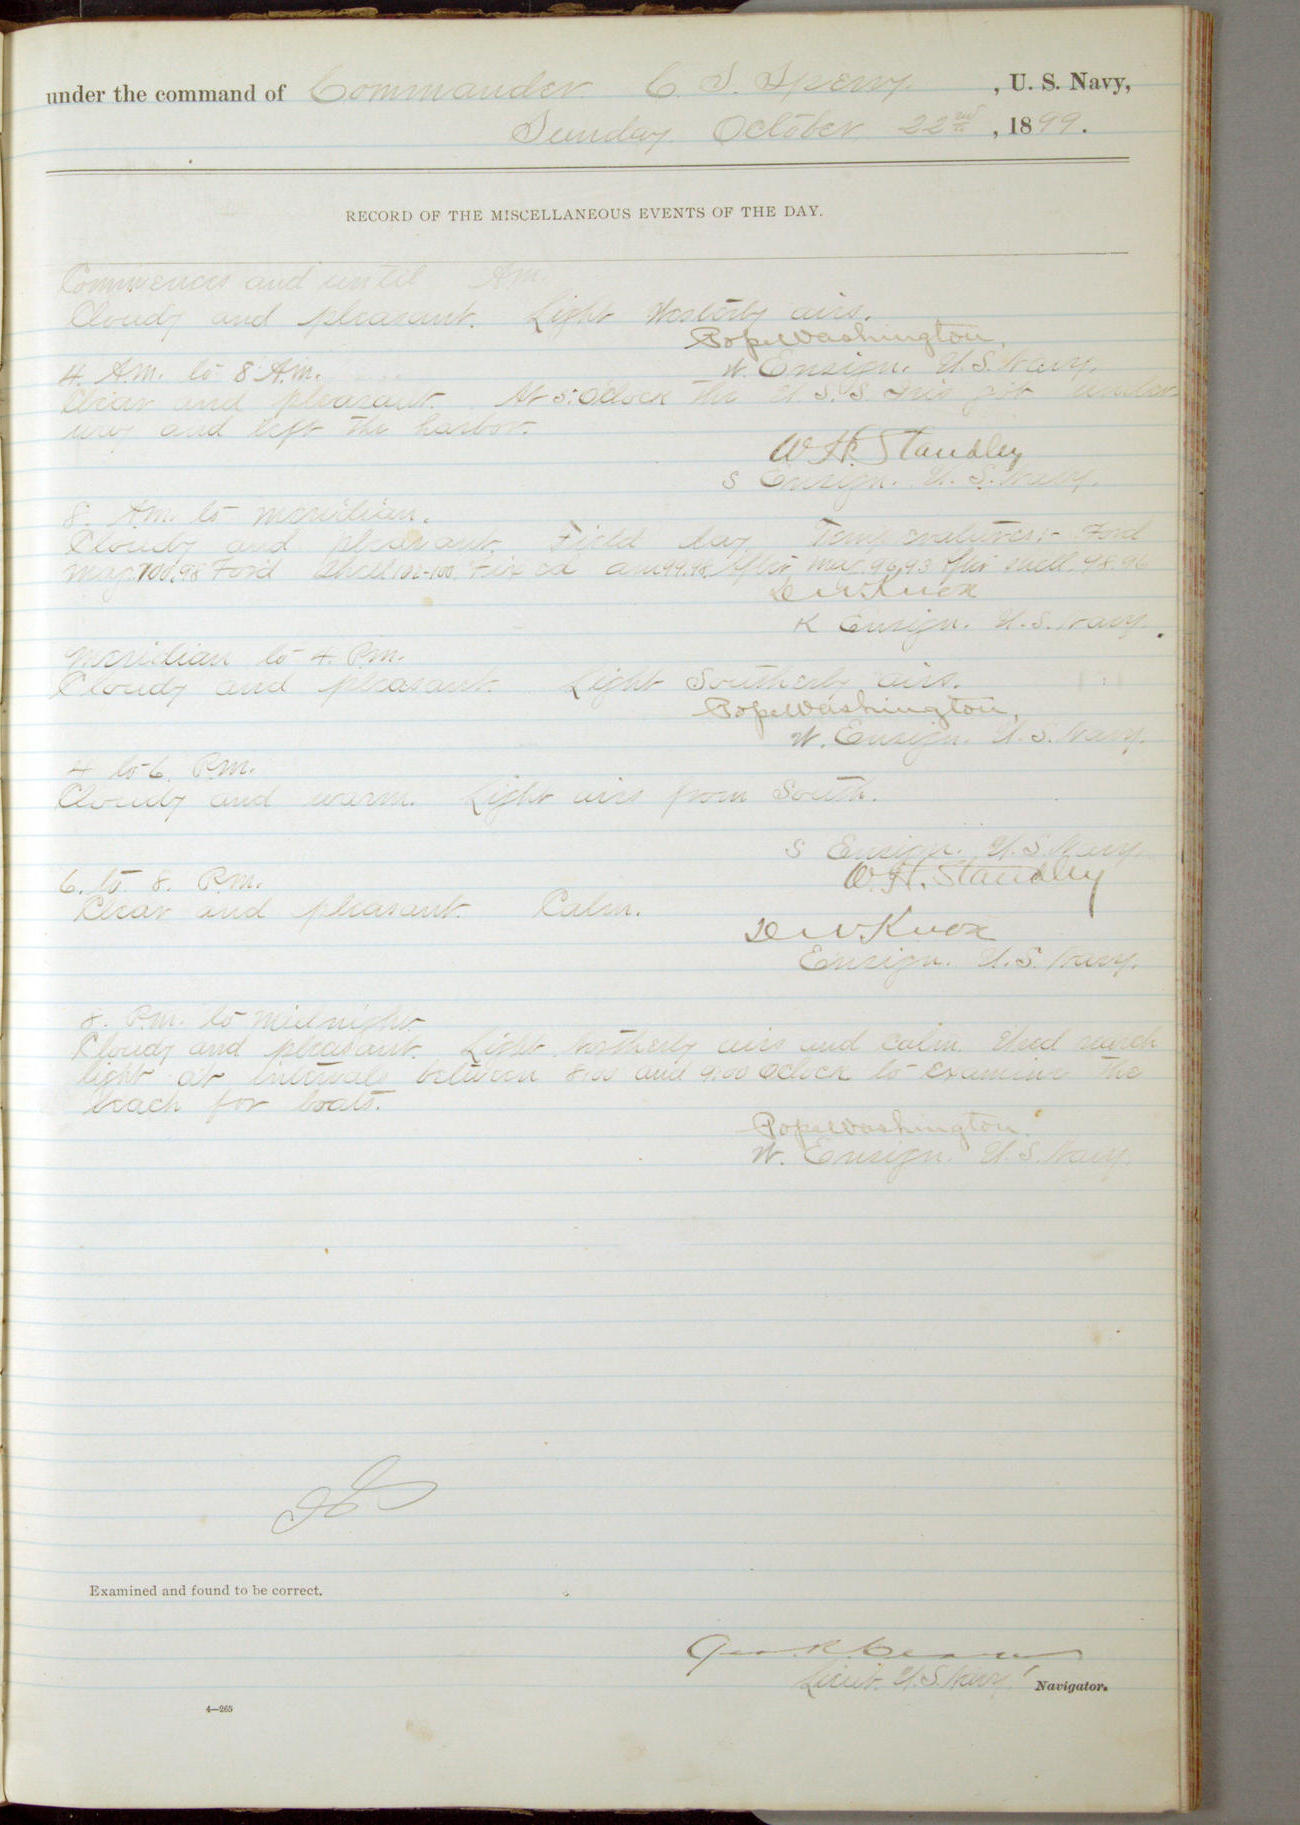 under the command of Commander C. S. Sperry, , U. S. Navy,
Sunday October 22nd, 1899.
RECORD OF THE MISCELLANEOUS EVENTS OF THE DAY.
Commences and until Am.
Cloudy and pleasant. Light Westerly airs.
Pope Washington,
W. Ensign. U.S. Navy.
4. A.m. to 8 A.m.
Clear and pleasant. At 5: O'clock the U.S.S. Iris got under-
way and left the harbor.
W H Standley
S Ensign. U. S. Navy.
8. Am. to meridian.
Cloudy and pleasant. Field day. Temperatures:- Ford
mag. 100.98 Ford Shell 102-100. Fixed am 99.98. After mag. 96.93 After shell. 98.96
D W Knox
K Ensign. U.S. Navy.
Meridian to 4. P.m.
Cloudy and pleasant. Light Southerly airs.
Pope Washington,
W. Ensign. U. S. Navy.
4 to 6. P.m.
Cloudy and warm. Light airs from South.
S Ensign. U.S. Navy.
W.H. Standley
6. to 8. P.m.
Clear and pleasant. Calm.
D W. Knox
Ensign. U.S. Navy.
8. P.m. to Midnight.
Cloudy and pleasant. Light Northerly airs and calm. Used search
light at intervals between 8:00 and 9:00 Oclock to examine the
beach for boats.
Pope Washington.
W. Ensign. U.S. Navy.
Examined and found to be correct.
Geo. R.
Lieut. U.S. Navy. Navigator.
4—265